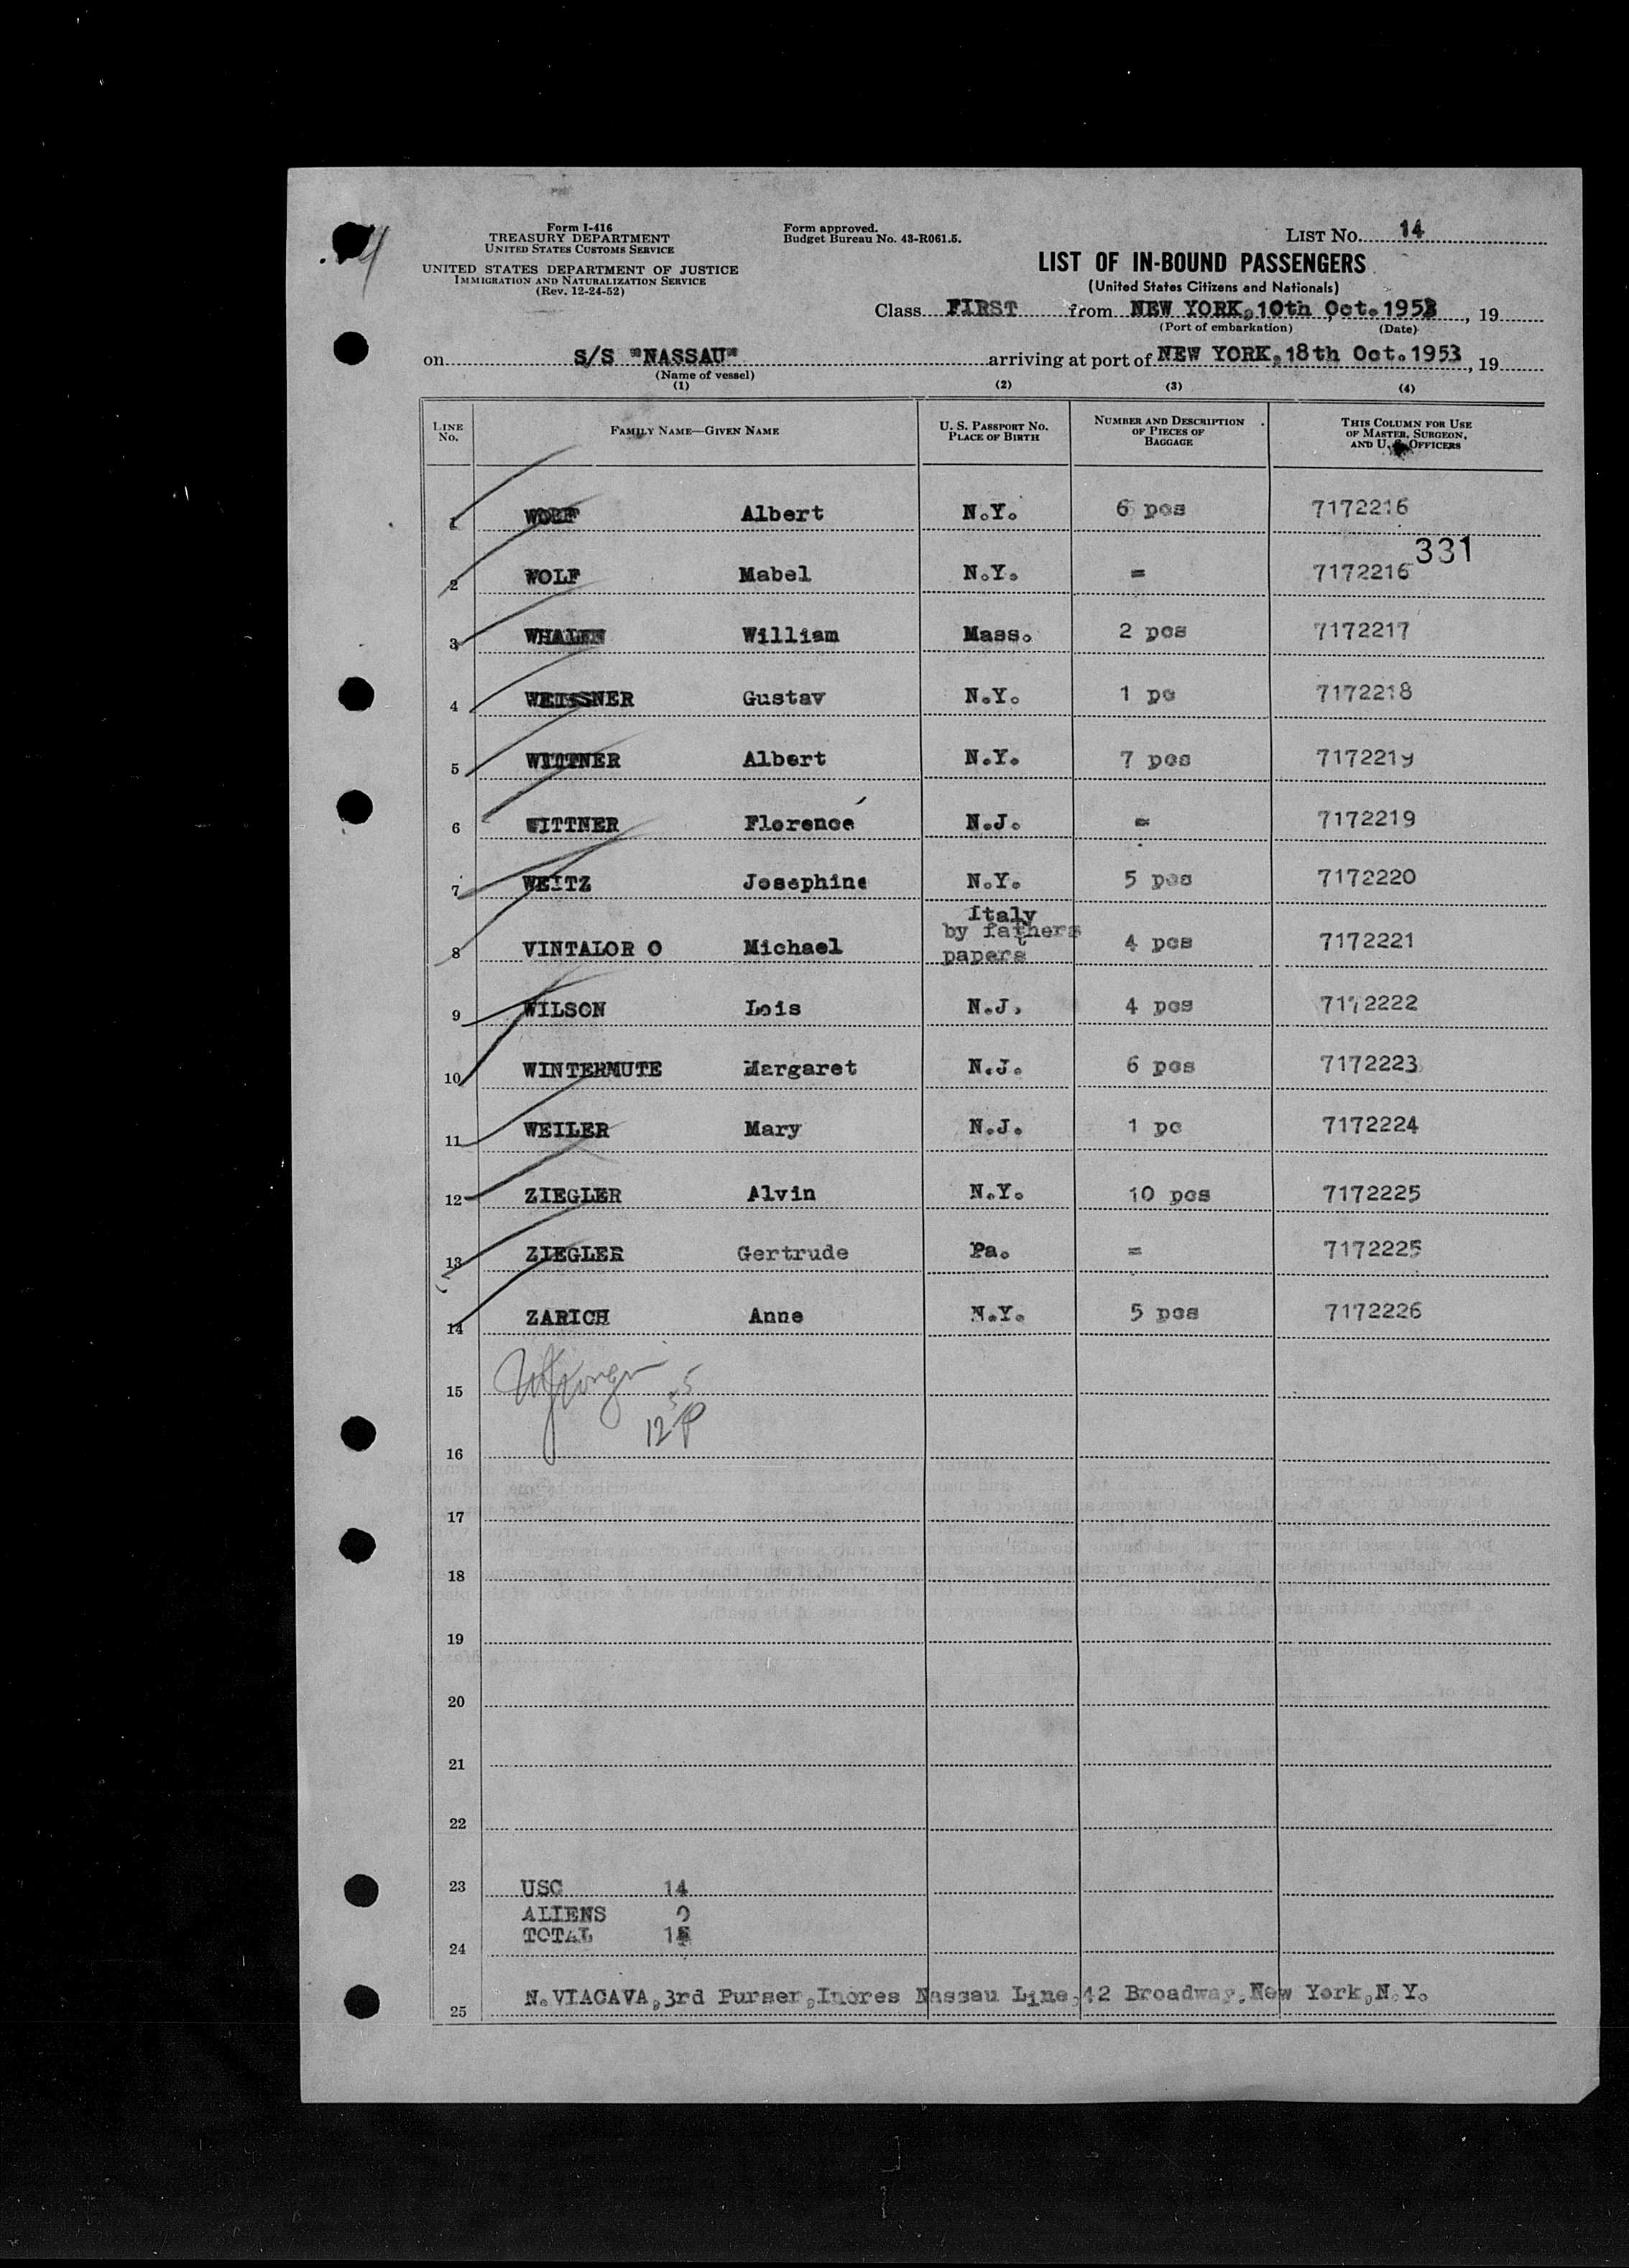 Form I-416
TREASURY DEPARTMENT
UNITED STATES CUSTOMS SERVICE
UNITED STATES DEPARTMENT OF JUSTICE
IMMIGRATION AND NATURALIZATION SERVICE
(Rev. 12-24-52)
Form approved.
Budget Bureau No. 43-R061.5.
LIST No. 14
LIST OF IN-BOUND PASSENGERS
(United States Citizens and Nationals)
Class FIRST from NEW YORK, 10th Oct. 1953, 19
(Port of embarkation) (Date)
on S/S "NASSAU" arriving at port of NEW YORK, 18th Oct. 1953, 19
(Name of vessel)
(1) (2) (3) (4)
LINE No. FAMILY NAME—GIVEN NAME U. S. PASSPORT No. PLACE OF BIRTH NUMBER AND DESCRIPTION OF PIECES OF BAGGAGE THIS COLUMN FOR USE OF MASTER, SURGEON, AND U. S. OFFICERS
1 WOLF Albert N.Y. 6 pcs 7172216
331
2 WOLF Mabel N.Y. = 7172216
3 WHALEN William Mass. 2 pcs 7172217
4 WEISSNER Gustav N.Y. 1 pc 7172218
5 WITTNER Albert N.Y. 7 pcs 7172219
6 WITTNER Florence N.J. = 7172219
7 WEITZ Josephine N.Y. 5 pcs 7172220
8 VINTALOR O Michael Italy by fathers papers 4 pcs 7172221
9 WILSON Lois N.J. 4 pcs 7172222
10 WINTERMUTE Margaret N.J. 6 pcs 7172223
11 WEILER Mary N.J. 1 pc 7172224
12 ZIEGLER Alvin N.Y. 10 pcs 7172225
13 ZIEGLER Gertrude Pa. = 7172225
14 ZARICH Anne N.Y. 5 pcs 7172226
15
16
17
18
19
20
21
22
23 USC 14
ALIENS 0
24 TOTAL 14
25 N. VIACAVA, 3rd Purser, Incres Nassau Line, 42 Broadway, New York, N.Y.